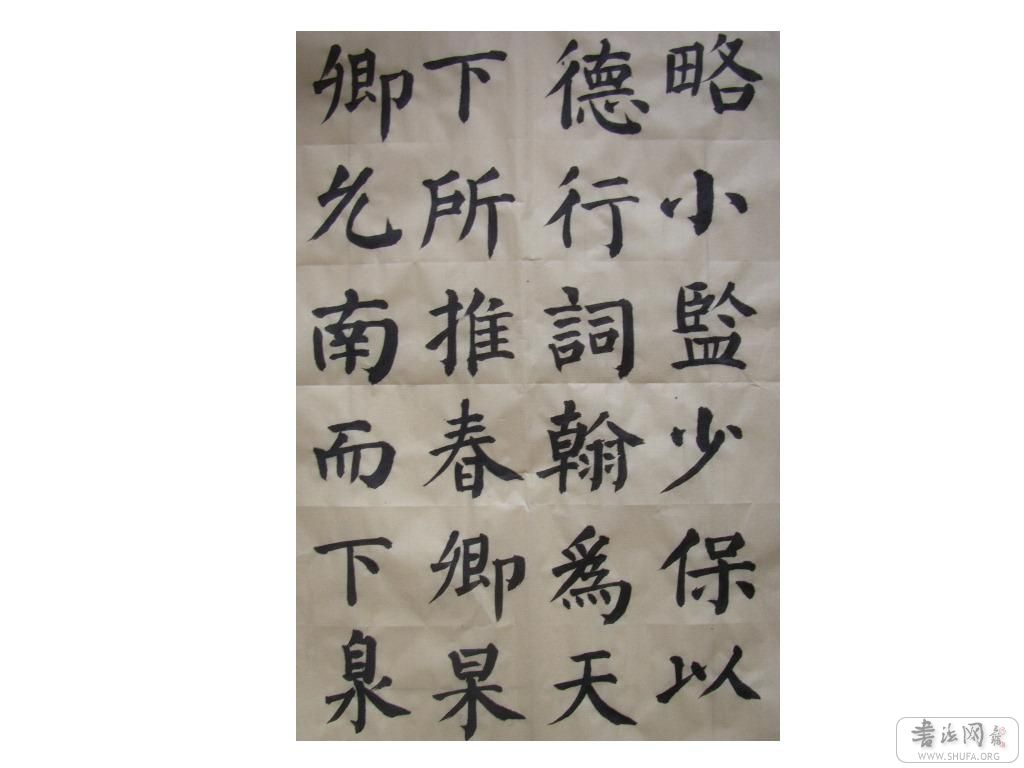 略小監少保以
德行詞翰爲天
下所推春卿杲
卿允南而下臮
書法网
WWW.SHUFA.ORG